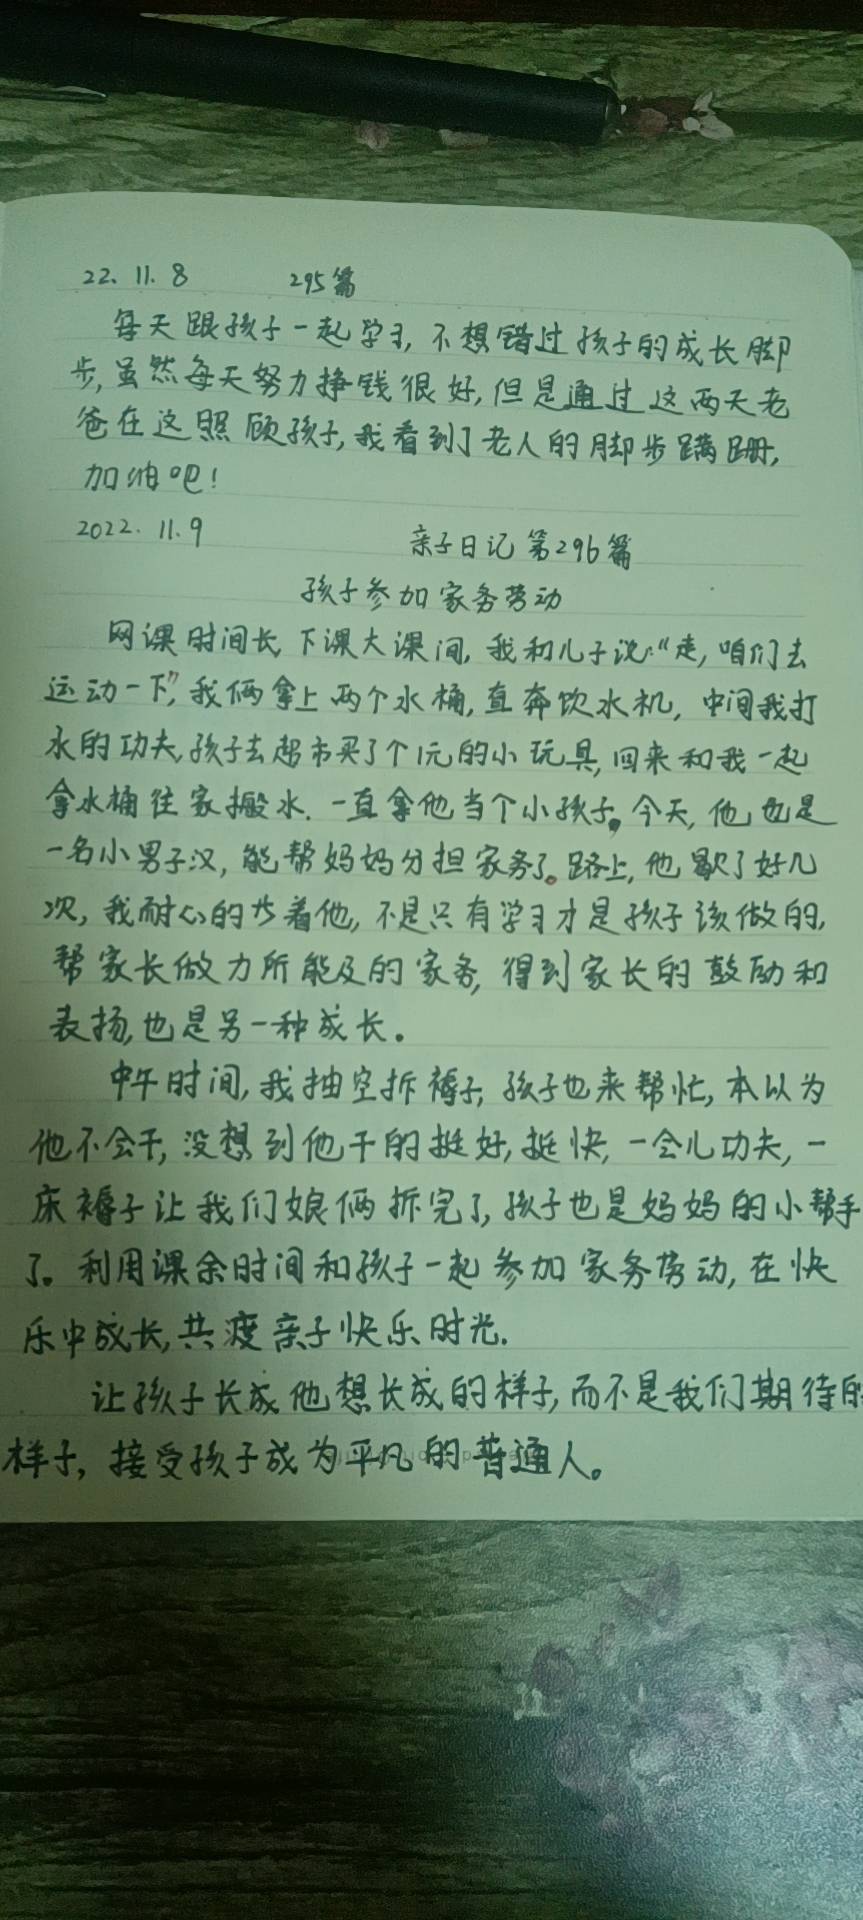 22.11.8 295篇
每天跟孩子一起学习,不想错过孩子的成长脚
步,虽然每天努力挣钱很好,但是通过这两天老
爸在这照顾孩子,我看到了老人的脚步蹒跚,
加油吧!
2022.11.9 亲子日记第296篇
孩子参加家务劳动
网课时间长,下课大课间,我和儿子说:“走,咱们去
运动一下”,我俩拿上两个水桶,直奔饮水机,中间我打
水的功夫,孩子去超市买了个1元的小玩具,回来和我一起
拿水桶往家搬水.一直拿他当个小孩子。今天,他也是
一名小男子汉,能帮妈妈分担家务了。路上,他歇了好几
次,我耐心的等着他,不是只有学习才是孩子该做的,
帮家长做力所能及的家务,得到家长的鼓励和
表扬,也是另一种成长。
中午时间,我抽空拆褥子,孩子也来帮忙,本以为
他不会干,没想到他干的挺好,挺快,一会儿功夫,一
床褥子让我们娘俩拆完了,孩子也是妈妈的小帮手
了。利用课余时间和孩子一起参加家务劳动,在快
乐中成长,共渡亲子快乐时光.
让孩子长成他想长成的样子,而不是我们期待的
样子,接受孩子成为平凡的普通人。